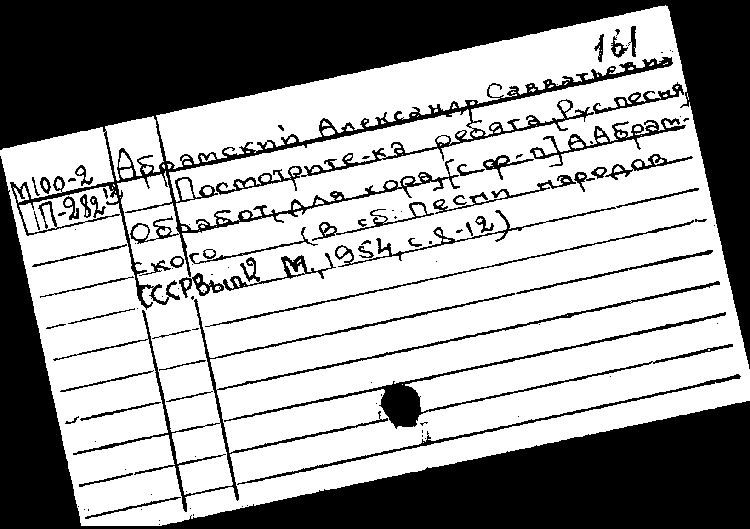 161
Абрамский, Александр Савватьевич
М100-2 Посмотрите-ка ребята, Рус. песня
П-282 Обработ. для хора, [с ф-п] А. Абрам-
ского. (В сб.: Песни народов
СССР, Вып. 12 М., 1954, с. 8-12).